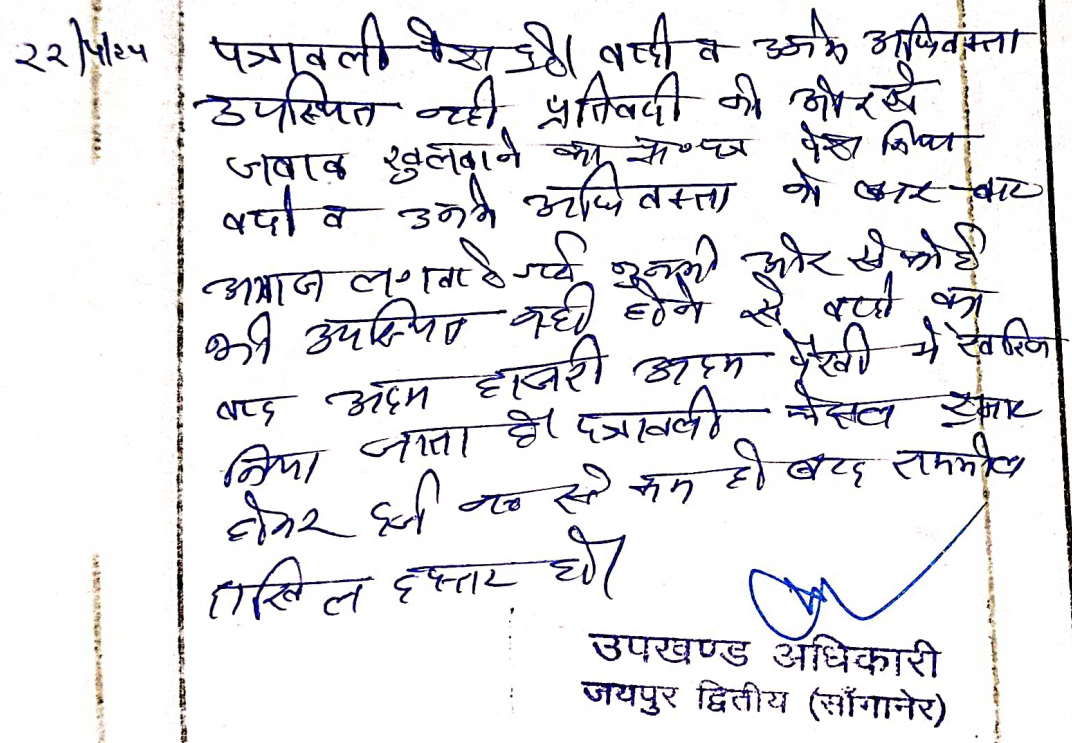 22/4/24 पत्रावली पेश हुई। वादी व उनके अधिवक्ता
उपस्थित नही प्रतिवादी की ओर से
जवाब खुलवाने का प्रा०पत्र पेश किया
वादी व उनके अधिवक्ता को बार-बार
आवाज लगवाई गई उनकी ओर से कोई
भी उपस्थित नही होने से वादी का
वाद अदम हाजरी अदम पैरवी मे खारिज
किया जाता है। पत्रावली फैसल शुमार
होकर दर्ज न० से कम हो बाद तकमील
दाखिल दफ्तर हो।
उपखण्ड अधिकारी
जयपुर द्वितीय (साँगानेर)